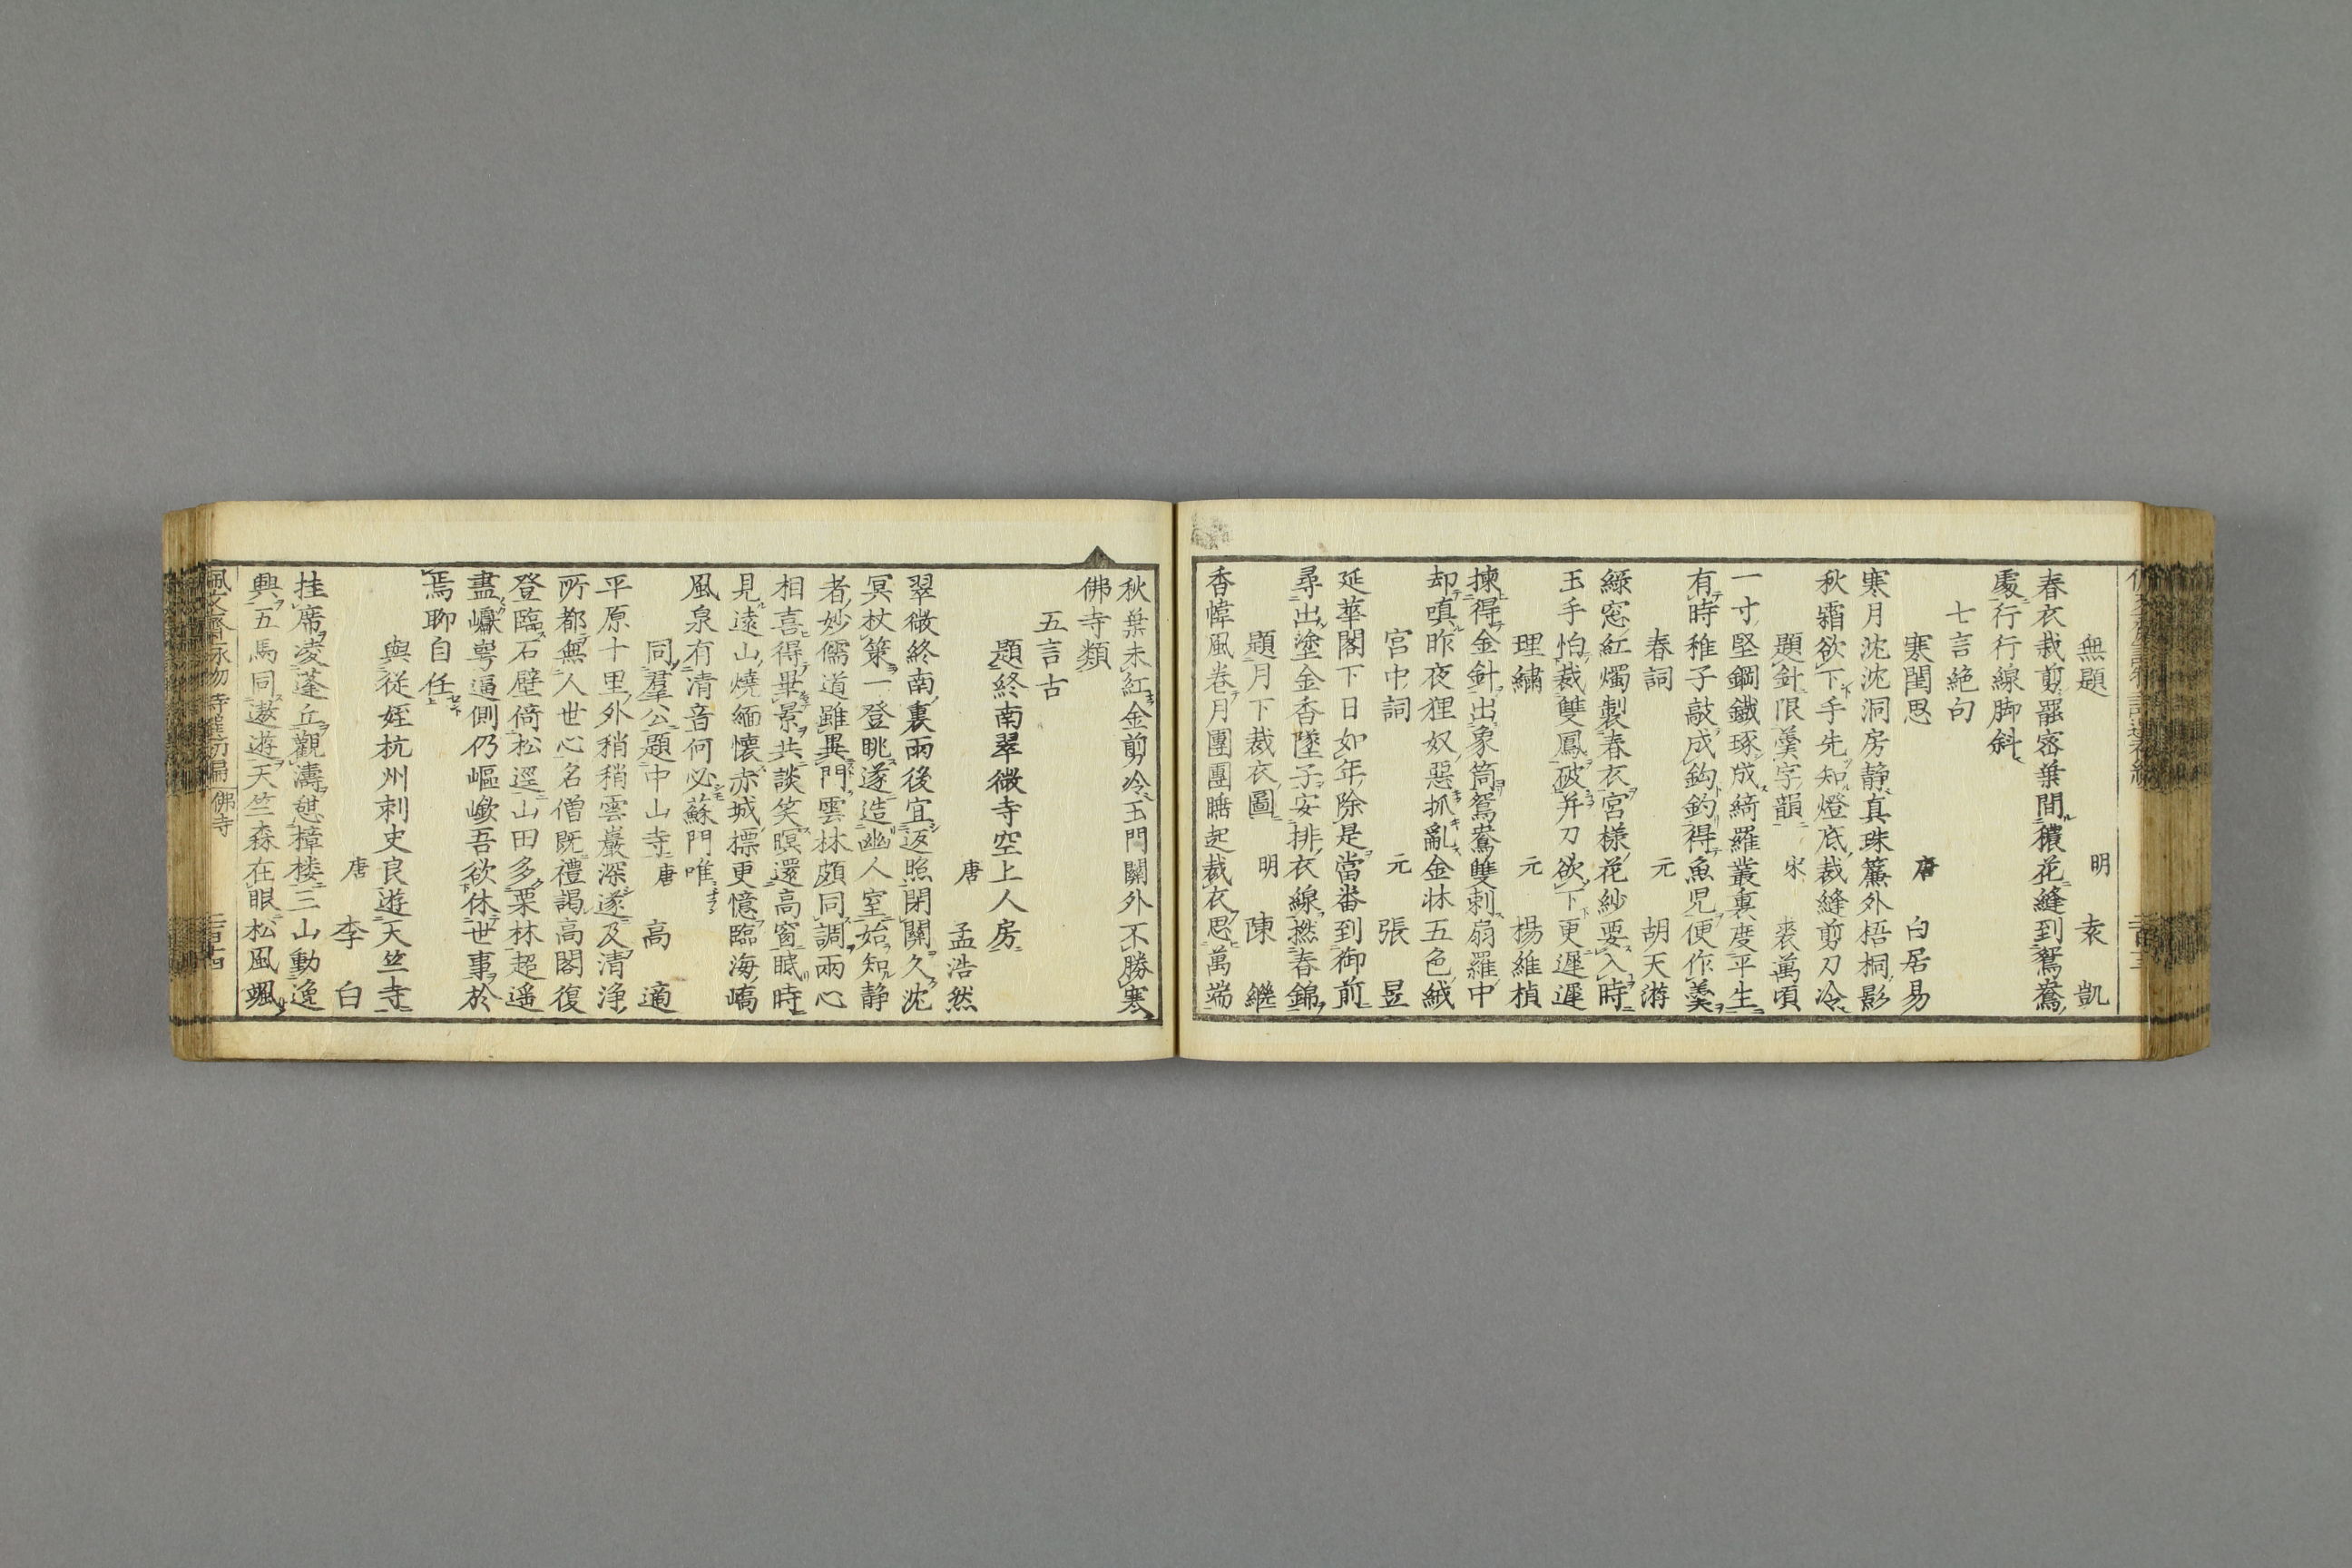 無題　明　袁凱
春衣裁剪罷密葉間穠花縫到鴛鴦
處行行線脚斜
七言絶句
寒閨思　唐　白居易
寒月沈沈洞房静真珠簾外梧桐影
秋霜欲下手先知燈底裁縫剪刀冷
題針限羹字韻　宋　裘萬頃
一寸堅鋼鐵琢成綺羅叢裏度平生
有時稚子敲成鈎釣得魚児便作羹
春詞　元　胡天游
綠窓紅燭製春衣宮樣花紗要入時
玉手怕裁雙鳳破并刀欲下更遲遲
理繡　元　楊維楨
揀得金針出象筒鴛鴦雙刺扇羅中
却嗔昨夜狸奴惡抓亂金牀五色絨
宮中詞　元　張昱
延華閣下日如年除是當番到御前
尋出塗金香墜子安排衣線撚春錦
題月下裁衣圖　明　陳繼
香幃風卷月團團睡起裁衣思萬端
秋葉未紅金剪冷玉門關外不勝寒
佛寺類
五言古
題終南翠微寺空上人房
唐　孟浩然
翠微終南裏雨後宜返照閉關久沈
冥杖策一登眺遂造幽人室始知静
者妙儒道雖異門雲林頗同調兩心
相喜得畢景共談笑暝還高窗眠時
見遠山燒緬懷赤城標更憶臨海嶠
風泉有清音何必蘇門唯
同群公題中山寺　唐　高適
平原十里外稍稍雲巖深遂及清浄
所都無人世心名僧既禮謁高閣復
登臨石壁倚松逕山田多栗林超遥
盡巘崿逼側仍嶇嶔吾欲休世事於
焉聊自任
與從姪杭州刺史良遊天竺寺
唐　李白
挂席凌蓬丘觀濤憩樟楼三山動逸
興五馬同遨遊天竺森在眼松風颯
佛寺